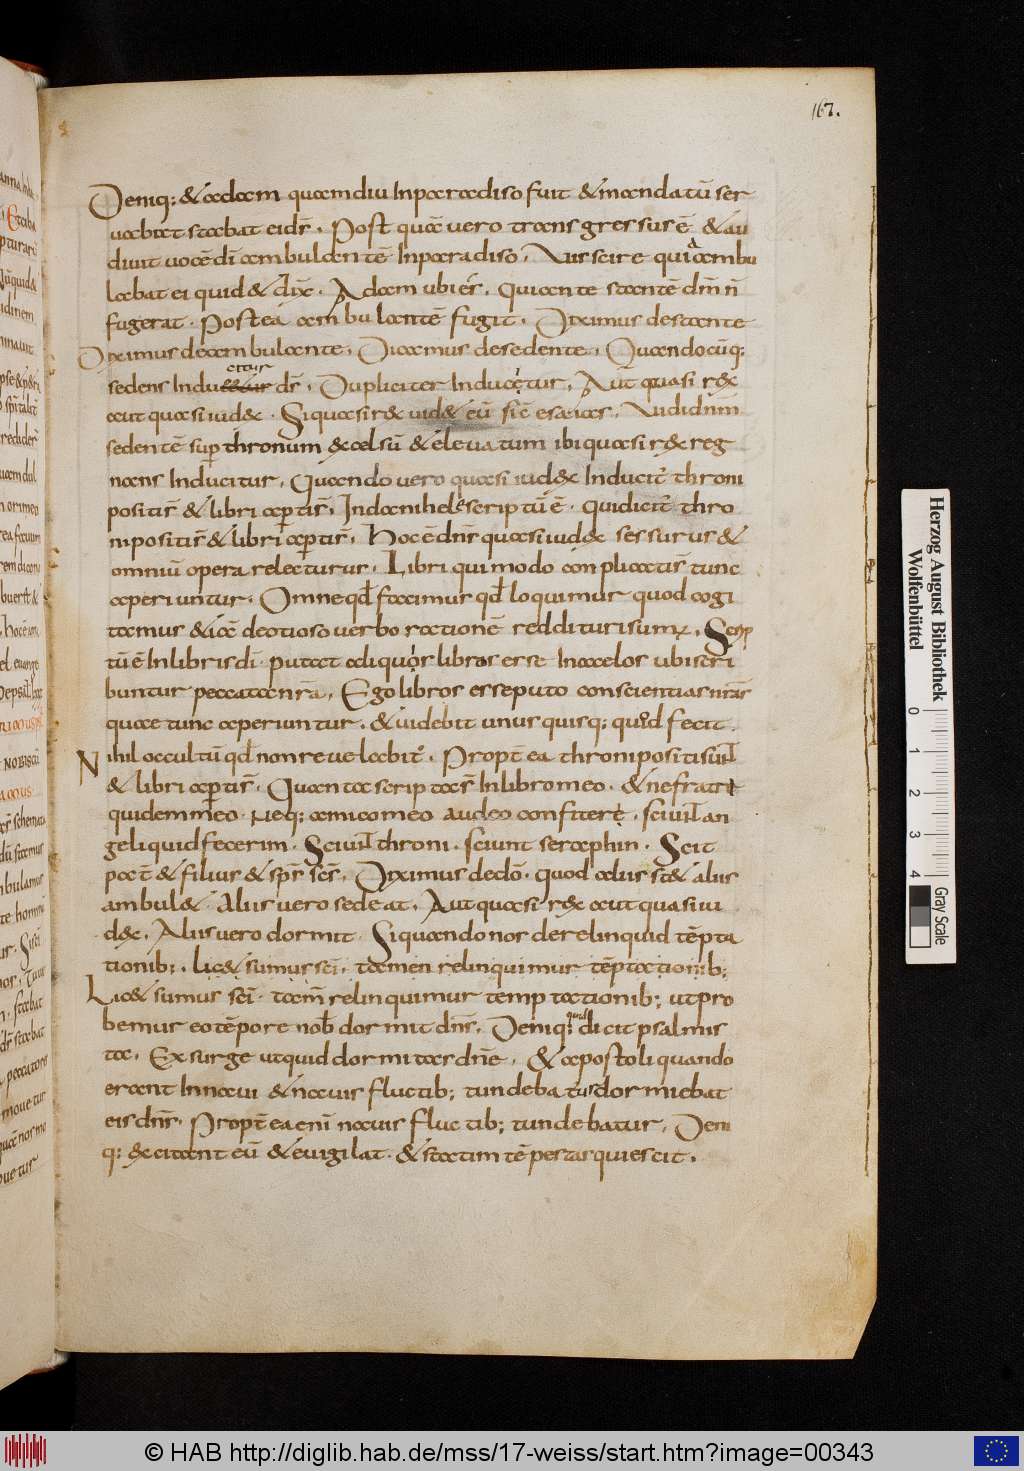 167.
Deniq; & adam quamdiu Inparadiso fuit & mandatū ser
uabat stabat ei dr̄. Post quā vero trans gressus ē & au
diuit uocē dī ambulantē Inparadiso. Vis scire qui ambu
labat ei quid & dix̄. Adam ubi es. Qui ante stantē dm̄ n̄
fugerat. Postea ambulantē fugit. Diximus destante
Diximus deambulante. Dicamus desedente. Quando cūq;
sedens Indu etur dr̄. Dupliciter Inducetur. Aut quasi rex
aut quasi iudex. Si quasi rex uid& eū sic̄ esaias. Vidi dn̄m
sedentē sup thronum excelsū & eleuatum ibi quasi rex reg
nans Inducitur. Quando uero quasi iudex Inducit̄ throni
positi sr̄ & libri apti sr̄. In danihele scriptū ē. Quidicit̄ thro
ni positi sr̄ & libri apti sr̄. Hoc ē dn̄s quasi iudex sessurus &
omniū opera relecturus. Libri qui modo conplicati sr̄ tunc
aperiuntur. Omne qd̄ facimus qd̄ loquimur quod cogi
tamus & iā deotioso uerbo rationē reddituri sumꝰ. Scrip
tū ē In libris dī. putat aliquis libros esse In caelos ubi scri
buntur peccata nr̄a. Ego libros esse puto conscientias nr̄as
quae tunc aperiuntur. & uidebit unus quisq; quod fecit.
Nihil occultū qd̄ non reuelabit̄. Propt̄ ea throni positi sunt
& libri apti sr̄. Quanta scripta sr̄ In libro meo. & ne fratri
quidem meo. neq; amico meo audeo confitere. sciunt an
geli quid fecerim. Sciunt throni. sciunt seraphin. Scit
pat̄ & filius & sp̄s scs̄. Diximus dedō. quod alius st& alus
ambul&. Alus uero sedeat. Aut quasi rex aut quasi iu
dex. Alus uero dormit. Si quando nos derelinquid tēpta
tionib;. lic& sumus scī. tamen relinquimur tēptationib;
Lic& sumus scī. tam̄ relinquimur temptationib; ut pro
bemur eo tēpore nob̄ dormit dn̄s. Deniq; dicit psalmis
ta. Exsurge utquid dormitas dn̄e. & apostoli quando
erant In naui & nauis fluctib; tundebatur dormiebat
eis dn̄s. Propt̄ ea enī nauis fluctib; tundebatur. Deni
q; excitant eū & euigilat. & statim tēpestas quiescit.
Herzog August Bibliothek
Wolfenbüttel
0 1 2 3 4
Gray Scale
© HAB http://diglib.hab.de/mss/17-weiss/start.htm?image=00343